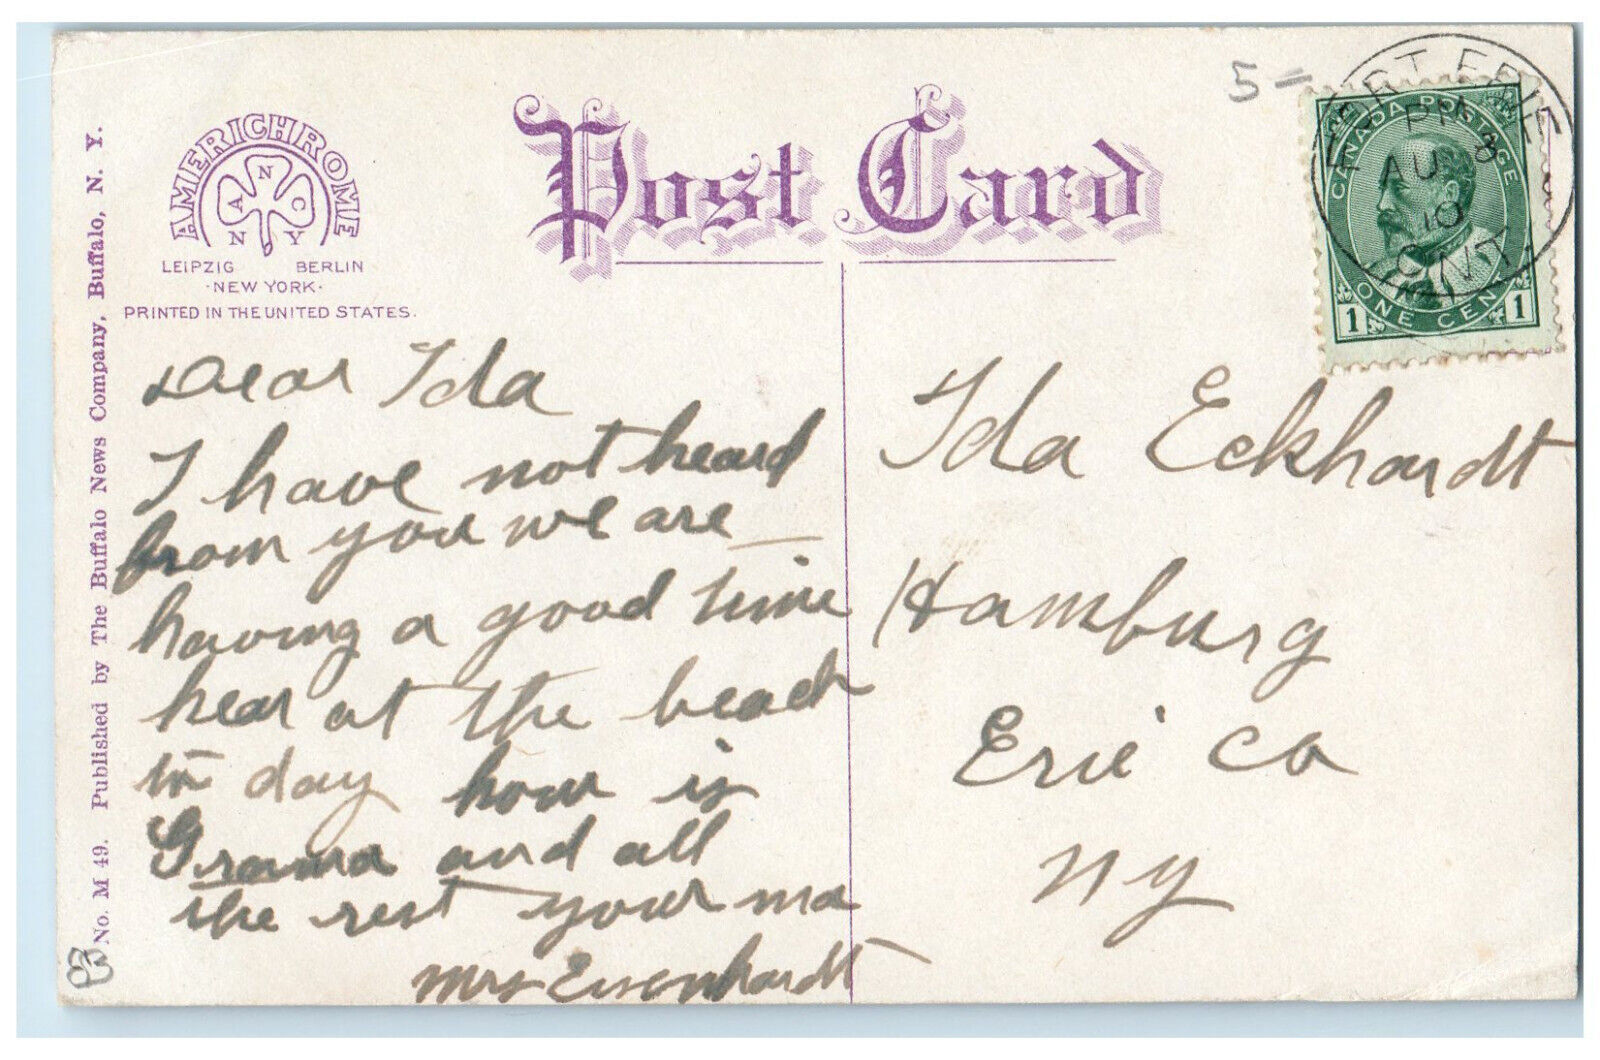 No. M 49. Published by The Buffalo News Company, Buffalo, N. Y.
AMERICHROME
N
A C
N Y
LEIPZIG BERLIN
·NEW YORK·
PRINTED IN THE UNITED STATES.
Post Card
5=
FORT ERIE
PM
AU 8
10
ONT
CANADA POSTAGE
1 ONE CENT 1
Dear Ida
I have not heard
from you we are
having a good time
hear at the beach
to day how is
Grama and all
the rest your ma
Mrs Eisenhardt
Ida Eckhardt
Hamburg
Erie Co
NY